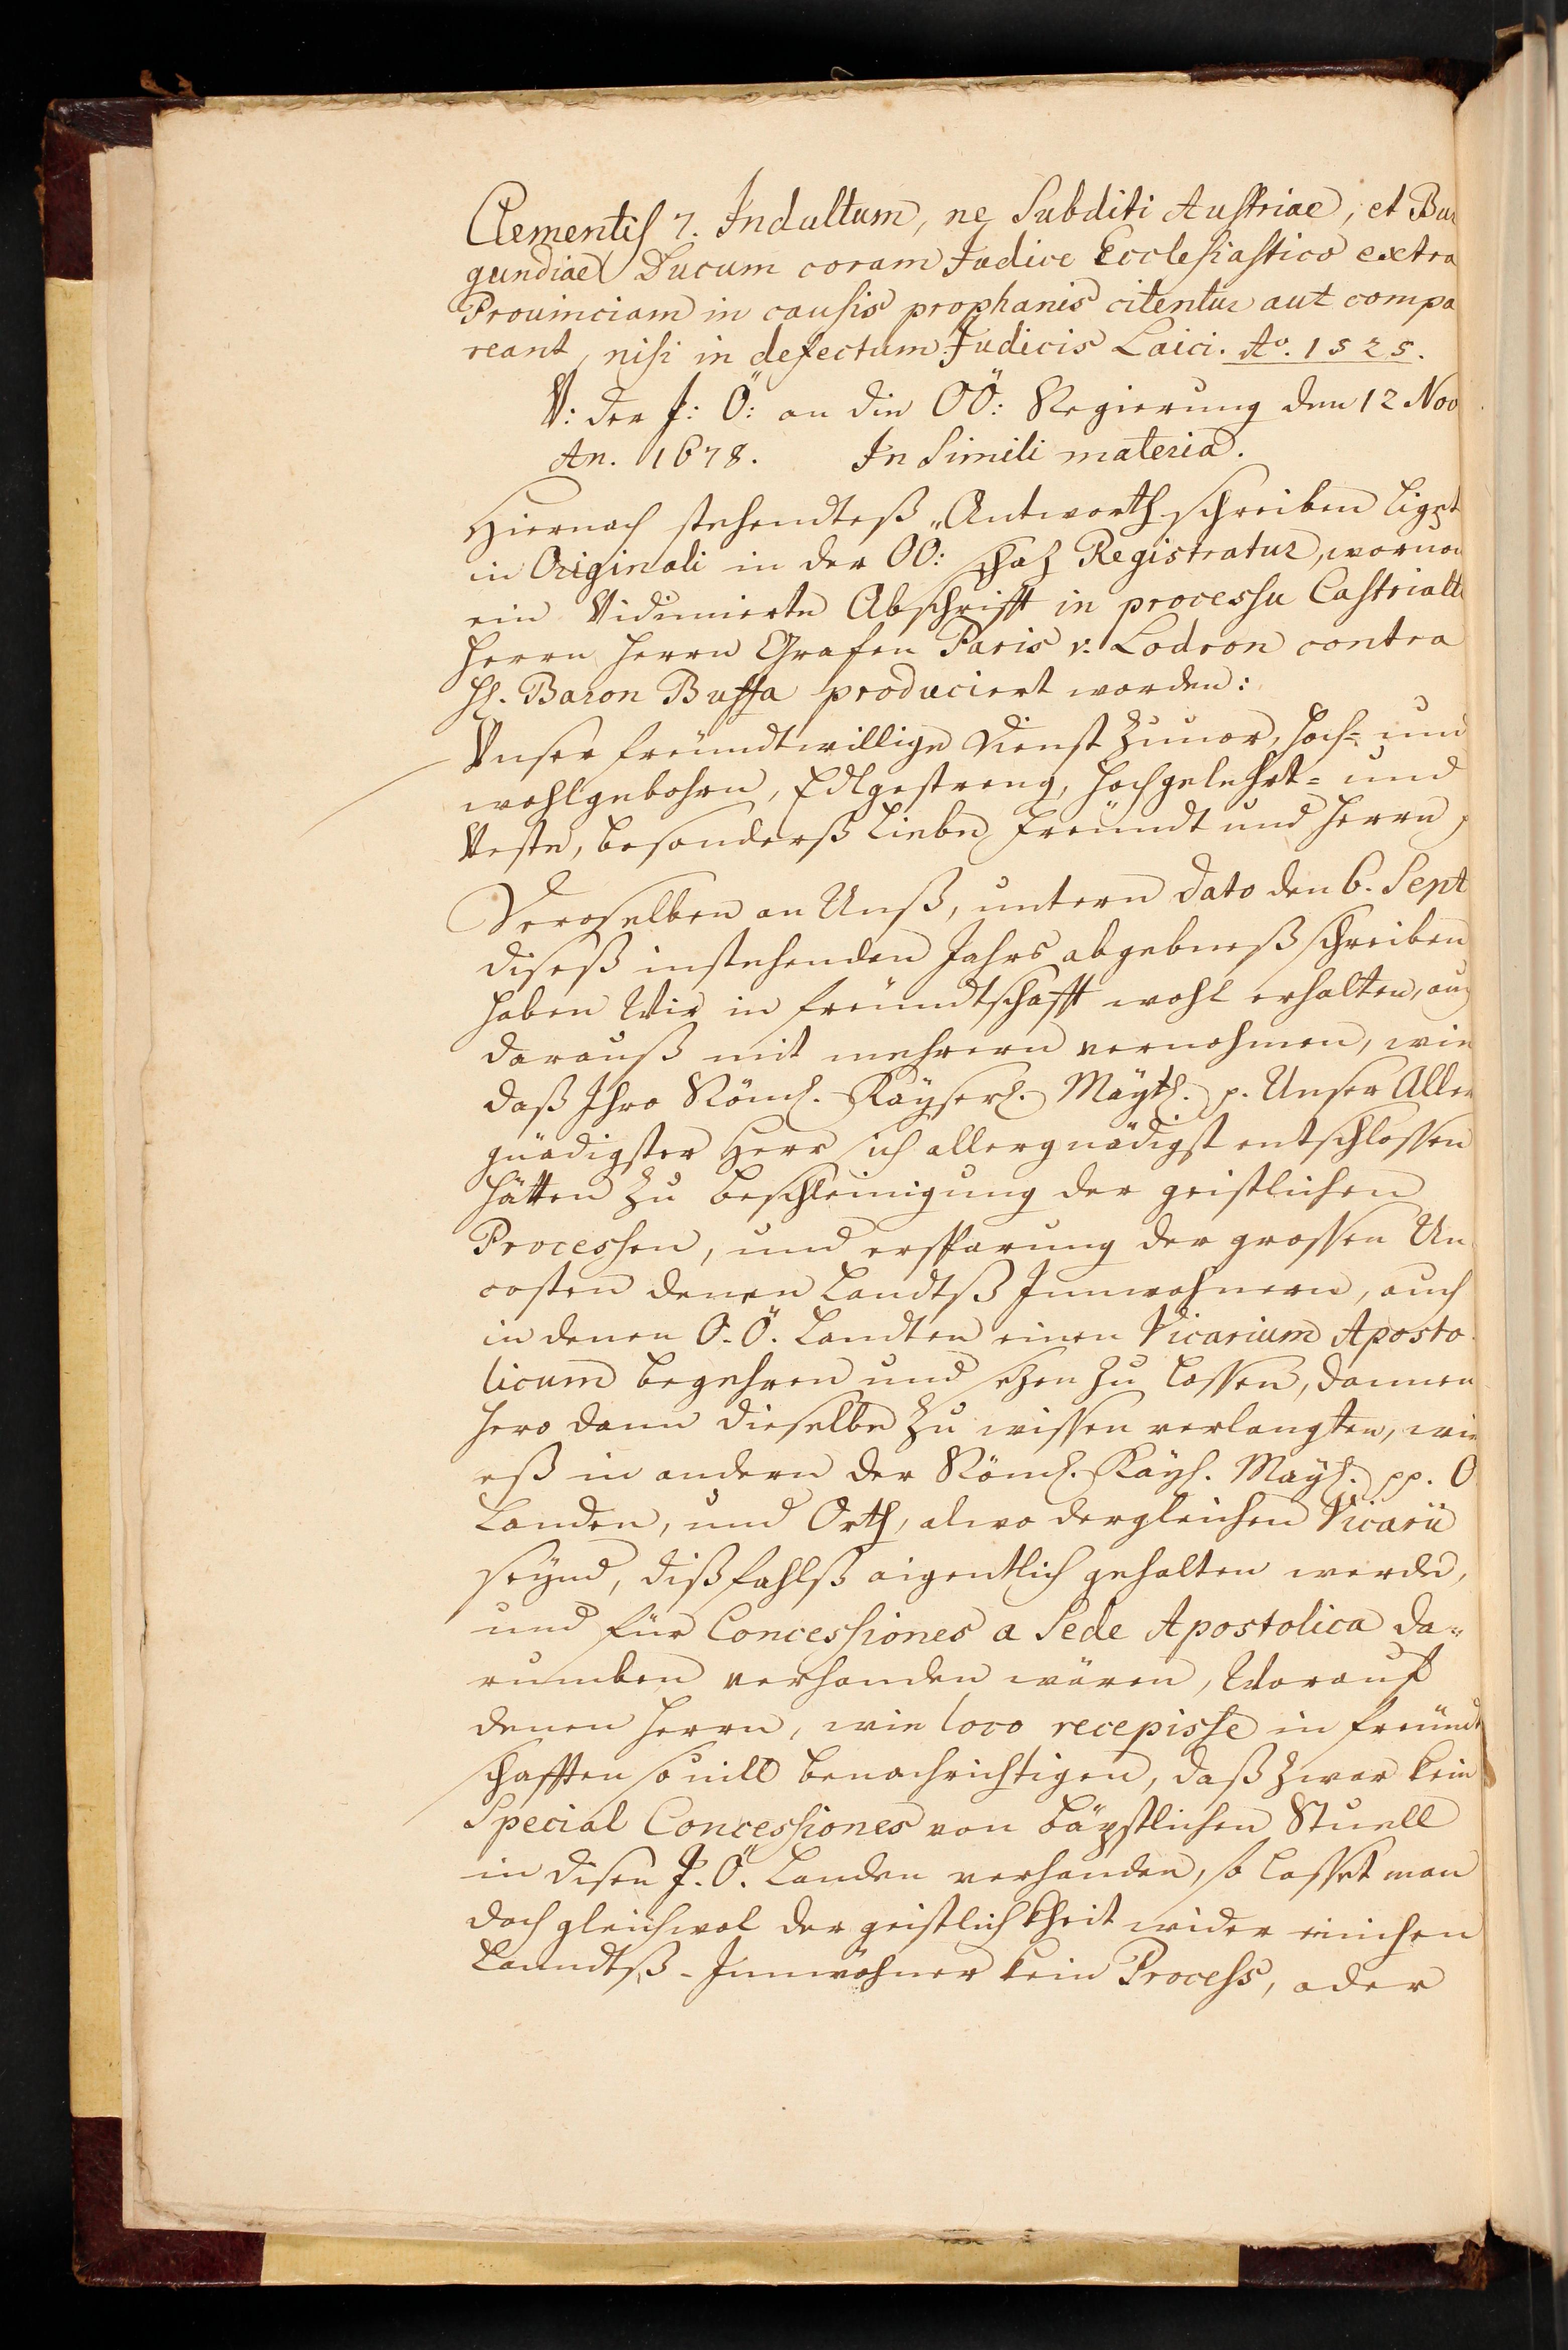 Clementis 7. Indultum, ne Subditi Austriae, et Bur
gundiae Ducum coram Judice Ecclesiastico extra
Prouinciam in causis prophanis citentur aut compa
reant, nisi in defectum Judicis Laici. Ao. 1525.
V: der J: Ö: an die OÖ: Regierung den 12 Nov
An. 1678. In Simili materia.
Hiernach stehendteß Antworth schreiben ligt
in Originali in der OÖ: Schaz Registratur, wornon
ein Vidimierte Abschrifft in processu Castrialto
Herrn Herrn Grafen Paris v: Lodron contra
H. Baron Buffa produciert worden:
Vnser freündtwillige Dienst Zuuor, Hoch= und
wohlgebohrn, Edlgestreng, Hochgelehrt= und
Veste, besonderß Liebe freündt und Herrn,
Deroselben an Unß, untern dato den 6. Sept
diseß instehenden Jahrs abgebneß schreiben
haben Wir in freündtschafft wohl erhalten, auch
darauß mit mehrern vernohmen, wie
daß Ihro Röml. Kayserl. Mayth. p. Unser Aller
gnädigster Herr sich allergnädigst entschlossen
hätten Zu beschleinigung der geistlichen
Processen, und ersparung der grossen Un
costen denen Landtß Innwohnern, auch
in denen O. Ö. Landten einen Vicarium Aposto
licum begehren und sezen Zu lassen, dannen
hero dann dieselbe Zu wissen verlangten, wie
eß in andern der Röml. Kayl. Mayl. pp. O
Landen, und Orth, alwo dergleichen Vicarii
seynd, dißfahlß aigentlich gehalten werde,
und für Concessiones a Sede Apostolica da=
rumben verhanden wären, Worauf
denen Herrn, wie loco recepisse in freündt
schafften souill benachrichtigen, daß Zwar kein
Special Concessiones von bäpstlichen Stuell
in disen J. Ö. Landen verhanden, so lasset man
doch gleichwol der geistlichkheit wider einichen
Lanndtß-Innwohner kein Process, oder